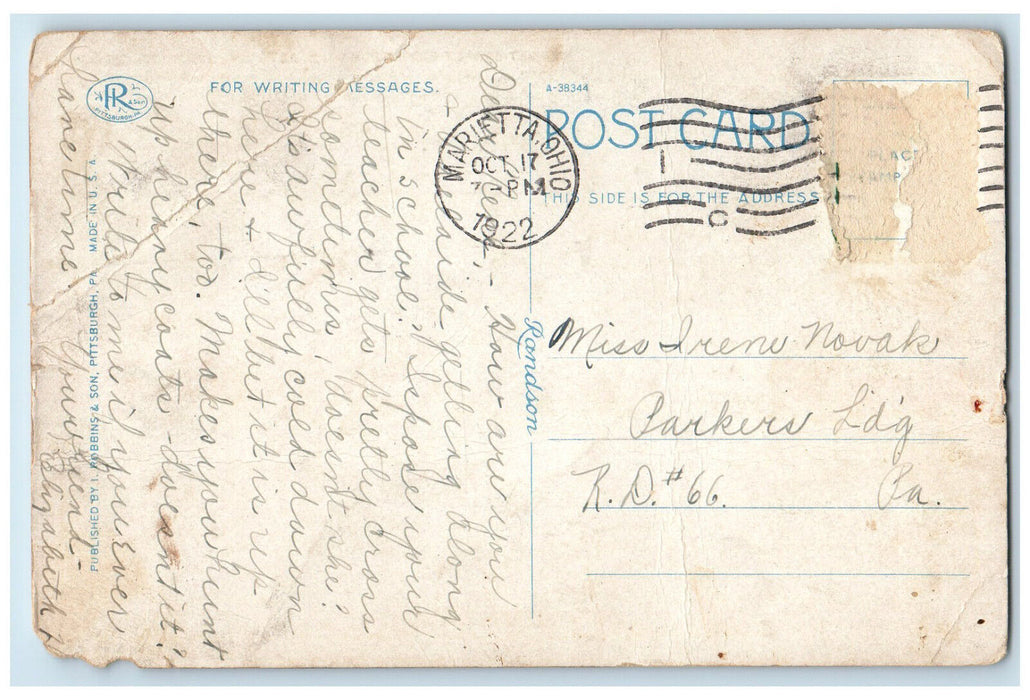 FOR WRITING MESSAGES.
A-38344
POST CARD
THIS SIDE IS FOR THE ADDRESS
PLACE
MARIETTA, OHIO
OCT 17
7-PM
1922
R & Son
PITTSBURGH, PA.
PUBLISHED BY I. ROBBINS & SON, PITTSBURGH, PA. MADE IN U. S. A.
Randson
Miss Irene Novak
Parkers Ld'g
R.D. #66. Pa.
How are you
+ getting along
in school? I spose your
teacher gets pretty cross
sometimes, doesn't she?
It's awfully cold down
here + I'll bet it is up
there, too. Makes you hunt
up skinny coats - doesn't it?
Write to me if you ever
Sometime Your friend -
Elizabeth